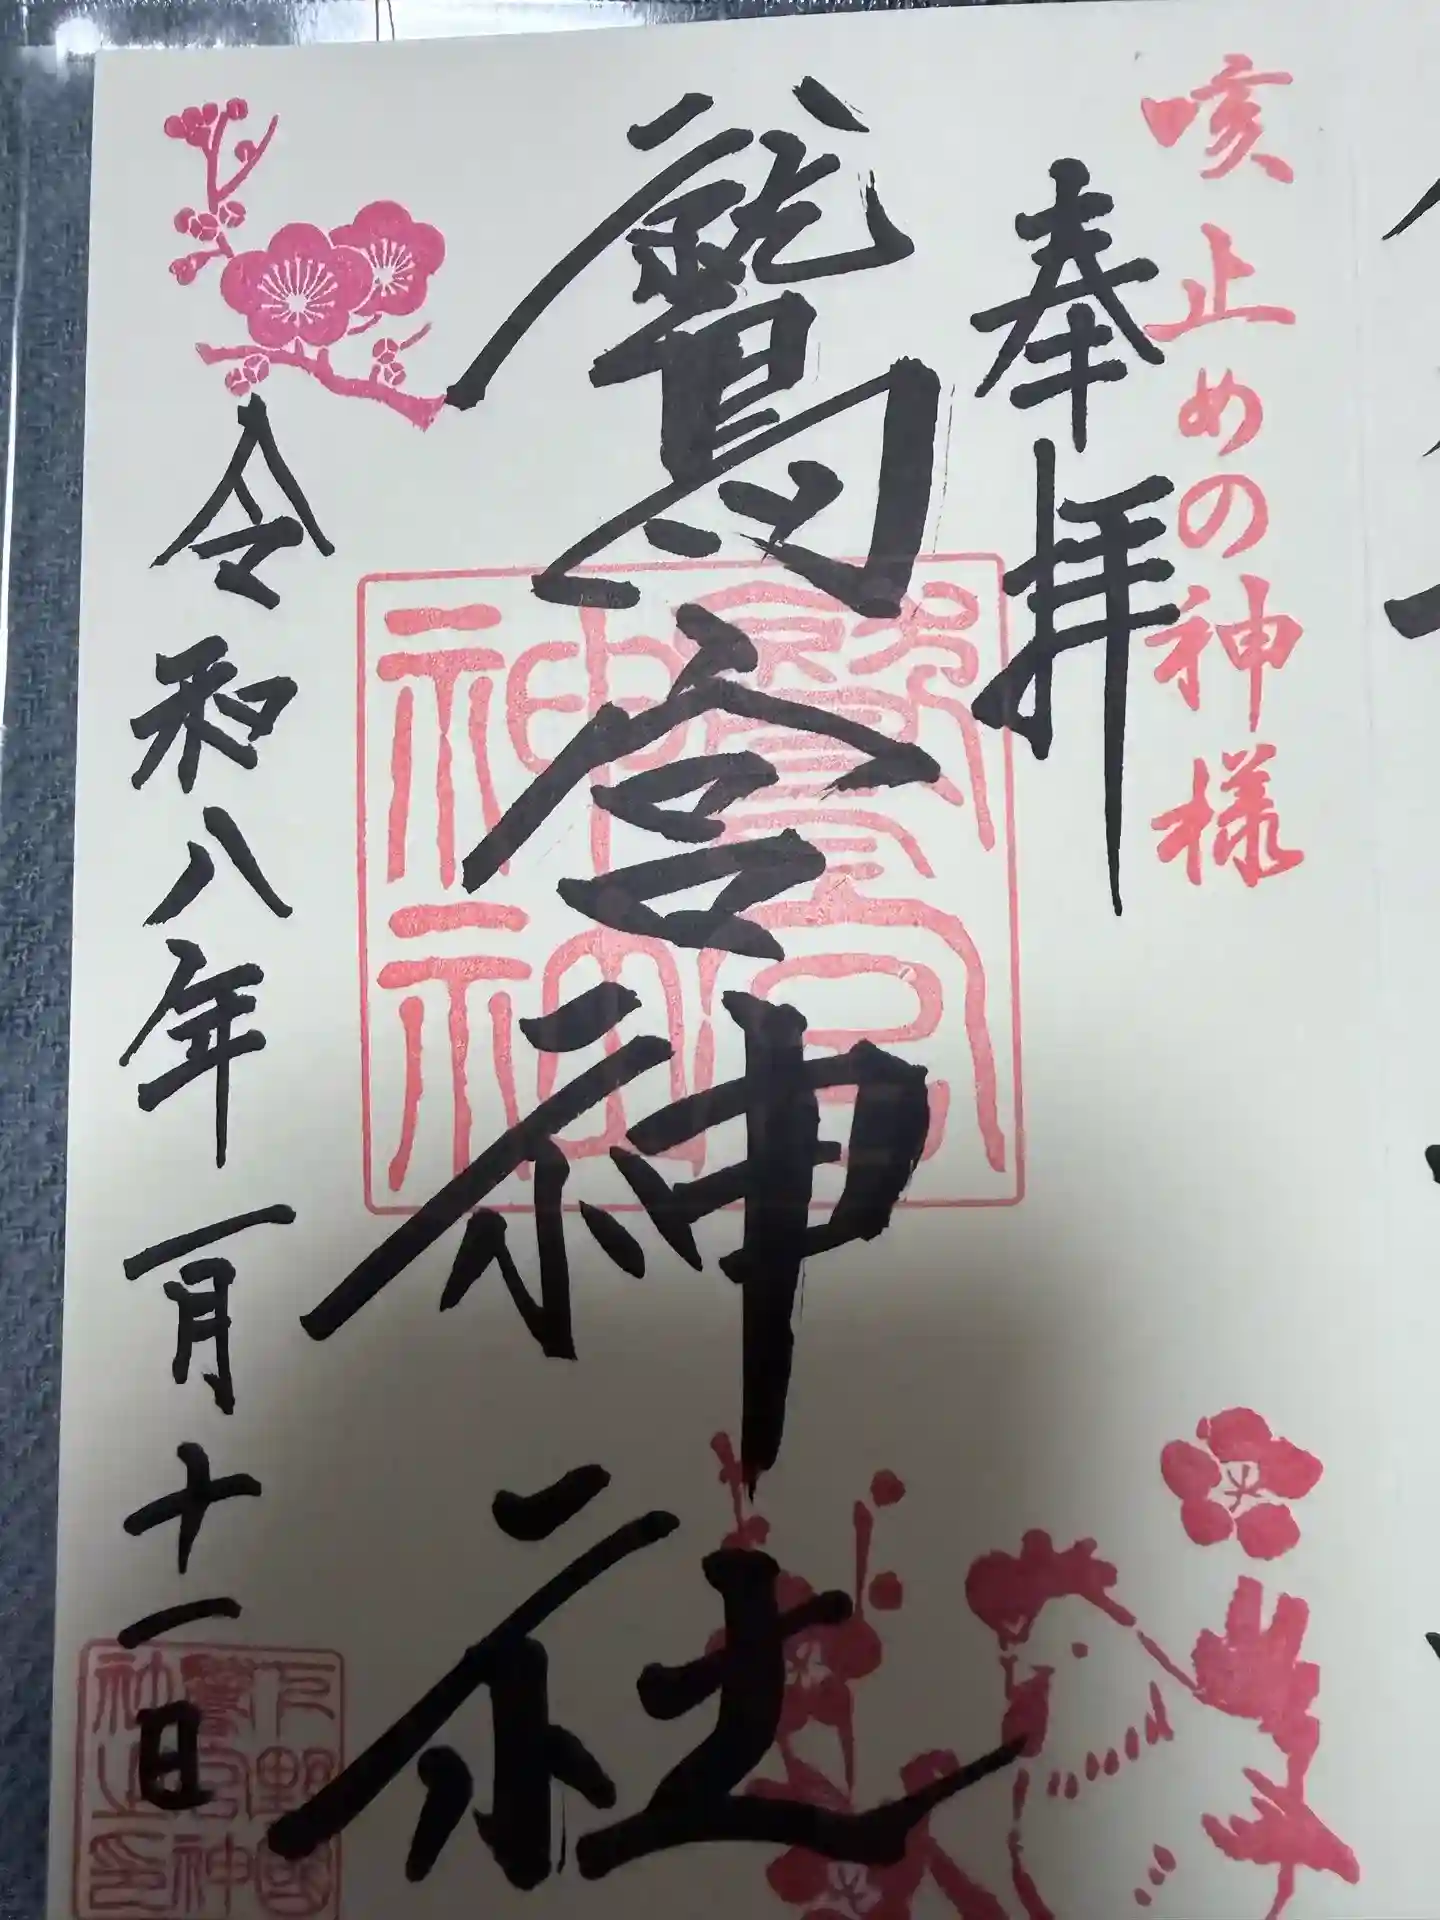 咳止めの神様
奉拝
鷲宮神社
令和八年一月十一日
鷲宮神社
下野國鷲宮神社之印